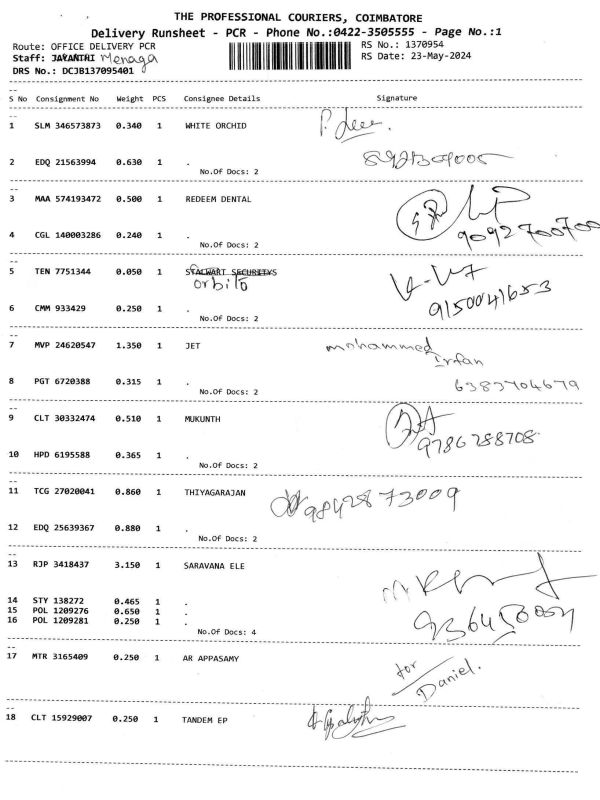 THE PROFESSIONAL COURIERS, COIMBATORE
Delivery Runsheet - PCR - Phone No.:0422-3505555 - Page No.:1
Route: OFFICE DELIVERY PCR RS No.: 1370954
Staff: JAYANTHI Menaga RS Date: 23-May-2024
DRS No.: DCJB137095401
S No Consignment No Weight PCS Consignee Details Signature
1 SLM 346573873 0.340 1 WHITE ORCHID
2 EDQ 21563994 0.630 1 .
No.Of Docs: 2
3 MAA 574193472 0.500 1 REDEEM DENTAL
4 CGL 140003286 0.240 1 . 9092700700
No.Of Docs: 2
5 TEN 7751344 0.050 1 STALWART SECURITYS
orbito
6 CMM 933429 0.250 1 . 9150041653
No.Of Docs: 2
7 MVP 24620547 1.350 1 JET mohammed
Irfan
8 PGT 6720388 0.315 1 . 6383704679
No.Of Docs: 2
9 CLT 30332474 0.510 1 MUKUNTH
9786788708
10 HPD 6195588 0.365 1 .
No.Of Docs: 2
11 TCG 27020041 0.860 1 THIYAGARAJAN 9842873009
12 EDQ 25639367 0.880 1 .
No.Of Docs: 2
13 RJP 3418437 3.150 1 SARAVANA ELE
14 STY 138272 0.465 1 .
15 POL 1209276 0.650 1 .
16 POL 1209281 0.250 1 .
No.Of Docs: 4
17 MTR 3165409 0.250 1 AR APPASAMY for
Daniel.
18 CLT 15929007 0.250 1 TANDEM EP